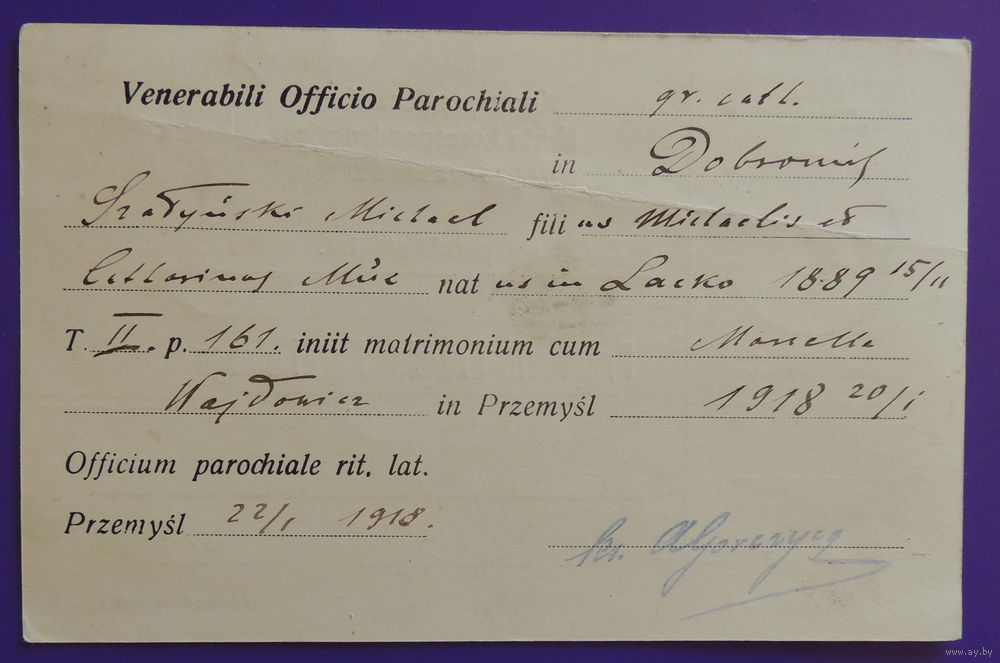 Venerabili Officio Parochiali gr. cath.
in Dobromil
Szałyński Michael filius Michaelis et
Catharinas Müc natus in Lacko 1889 15/11
T. II. p. 161. iniit matrimonium cum Marcella
Wajdowicz in Przemyśl 1918 20/1
Officium parochiale rit. lat.
Przemyśl 22/1 1918.
ks.
www.ay.by